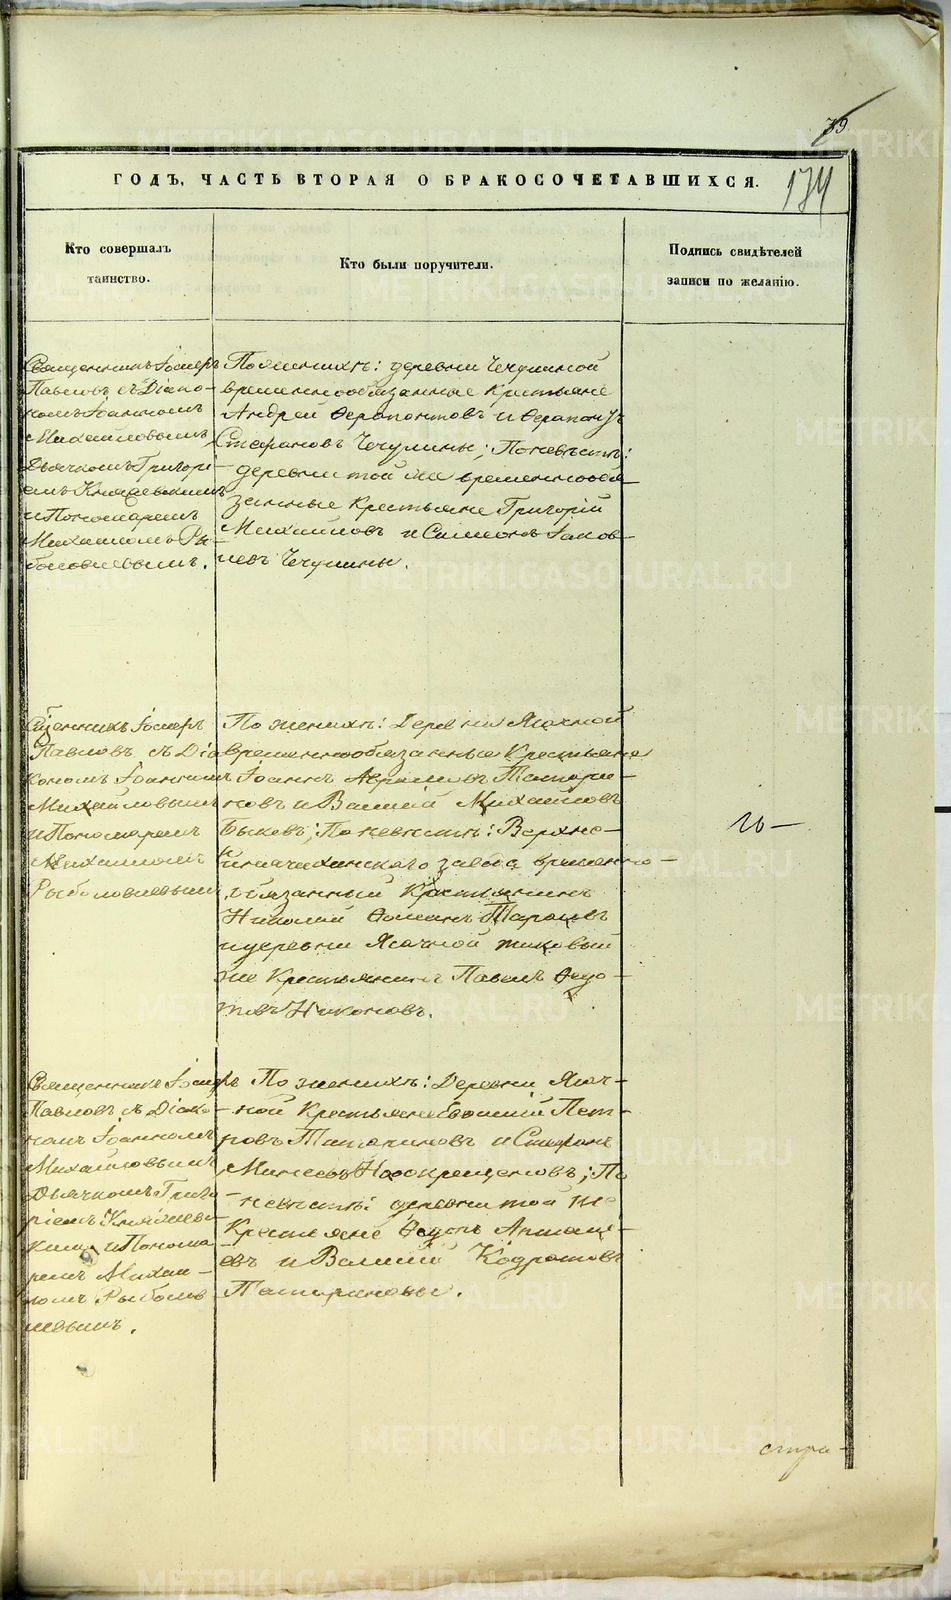 39
ГОДЪ, ЧАСТЬ ВТОРАЯ О БРАКОСОЧЕТАВШИХСЯ.
174
Кто совершалъ
таинство.
Кто были поручители.
Подпись свидѣтелей
записи по желанію.
Священникъ Іосифъ
Павловъ съ Діако-
номъ Іоанномъ
Михайловымъ,
Дьячкомъ Григорі-
емъ Княжевскимъ
и Пономаремъ
Михаиломъ Ры-
боловлевымъ.
По женихѣ: деревни Чечулиной
временнообязанные крестьяне
Андрей Ѳерапонтовъ и Ѳерапонтъ
Стефановъ Чечулины; По невѣстѣ:
деревни той же временнообя-
занные крестьяне Григорій
Михайловъ и Симеонъ Іаков-
левъ Чечулины.
Священникъ Іосифъ
Павловъ съ Діа
кономъ Іоанномъ
Михайловымъ
и Пономаремъ
Михаиломъ
Рыболовлевымъ
По женихѣ: Деревни Ясачной
временнообязанные Крестьяне
Іоаннъ Абрамовъ Татари-
новъ и Василій Михайловъ
Быковъ; По невѣстѣ: Верхне-
заведа временно-
обязанный Крестьянинъ
Николай Ѳоминъ
и деревни Ясачной таковый
же Крестьянинъ Павелъ Ѳедо-
товъ Никоновъ.
ль-
Священникъ Іосифъ
Павловъ съ Діако-
номъ Іоанномъ
Михайловымъ
Дьячкомъ Григо
ріемъ Княжев-
скимъ и Понома
ремъ Михаи-
ломъ Рыболов
левымъ.
По женихѣ: Деревни Ясач-
ной Крестьяне Василій Пет-
ровъ Татариновъ и Стефанъ
Новокрещеновъ; По
невѣстѣ: деревни той же
Крестьяне
евъ и Василій Кодратовъ
Татариновы.
стра-
METRIKI.GASO-URAL.RU